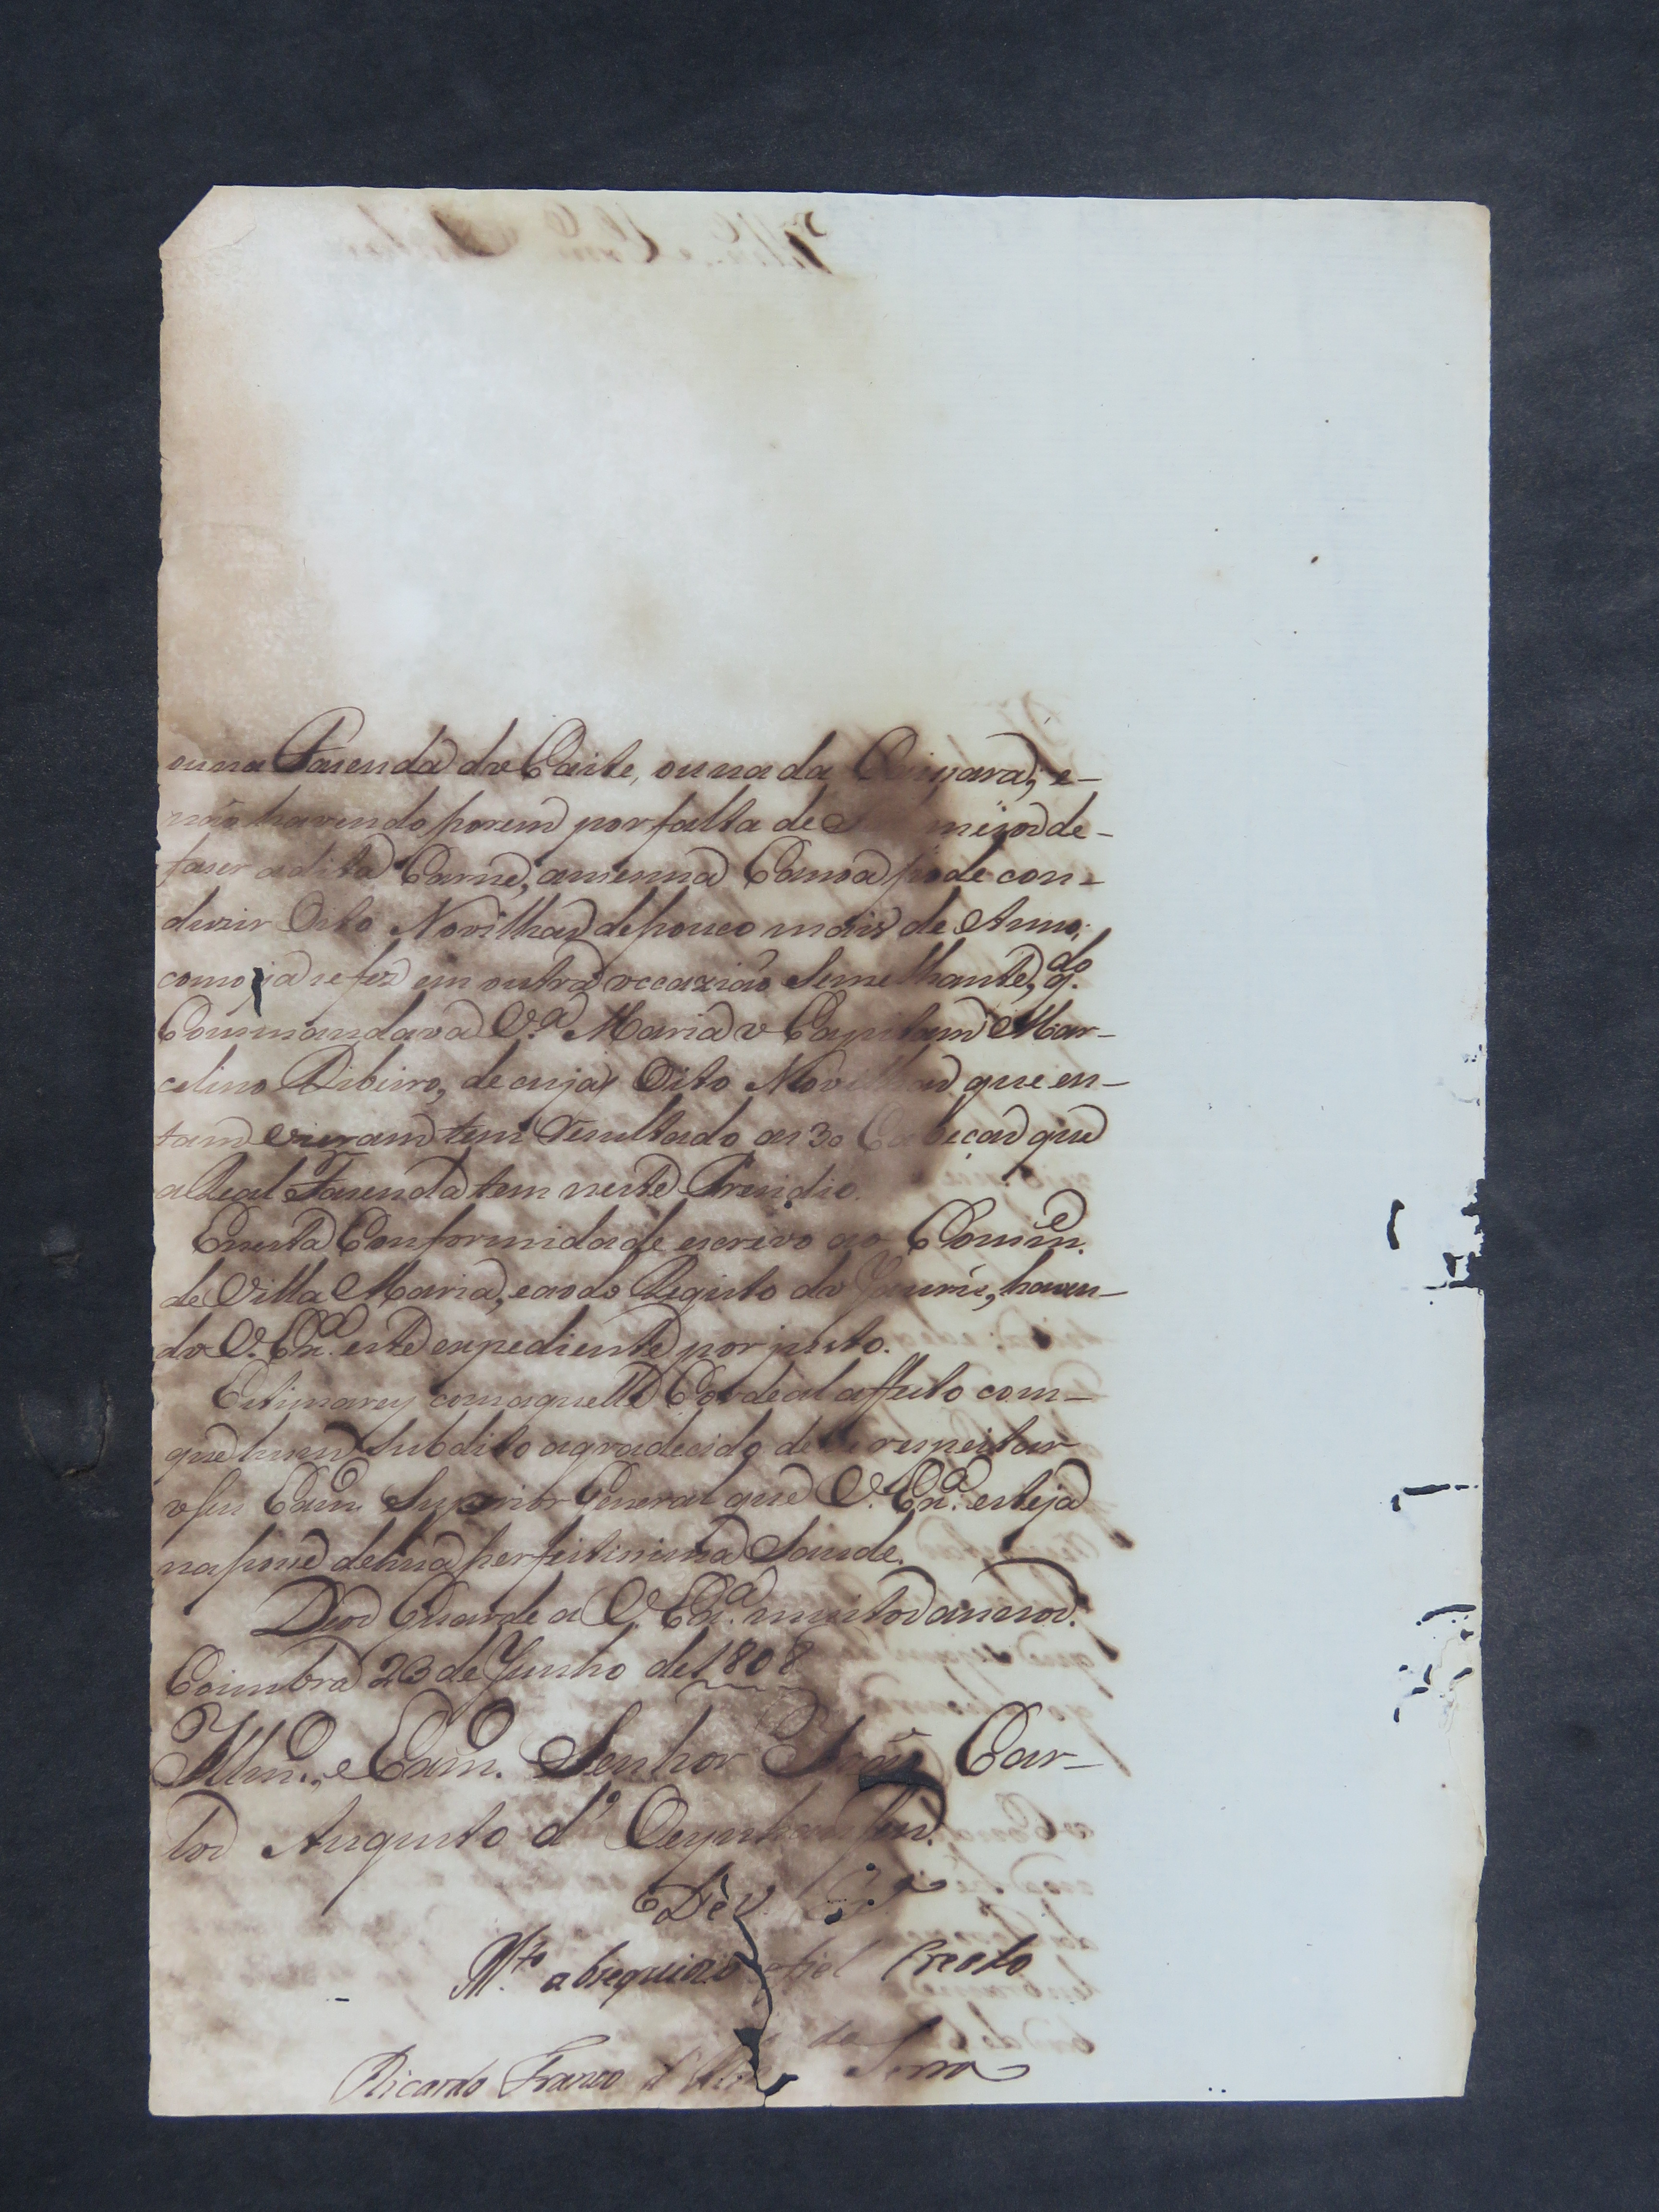 ou na Fasenda do Caite, ou na da Caissara, e-
não havendo porem por falta de meios de-
faser a dita Carne, a mesma Canoa pode con-
dusir Oito Novilhas de pouco mais de Anno,
como já se fes em outra occazião Semelhante, q.do
Commandava V.a Maria o Capitam Mar-
celino Ribeiro, de cujas Oito Novilhas que en-
tam vieram tem resultado as 30 Cabecas que
a Real Fasenda tem neste Presidio.
E nesta Conformidade escrevo ao Comm.e
de Villa Maria, e ao do Registo do Jaurú, haven-
do V. Ex.a este expediente por justo.
Estimarey com aquelle Cordeal affecto com-
que hum Subdito agradecido deve respeitar
o seu Exm.o Superior General que V. Ex.a esteja
na posse de huma perfeitissima Saude.
Deos Guarde a V. Ex.a muitos annos.
Coimbra 23 de Junho de 1808
Illm.o, e Exm.o Senhor João Car-
los Augusto d' Oeynhausen.
De V. Ex.a
M.to obsequiozo fiel Creado
Ricardo Franco d' Alm.da de Serra